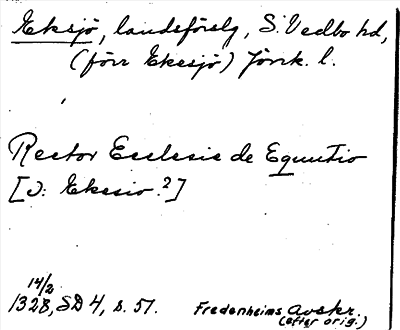 Eksjö, landsförslg, S. Vedbo hd,
(förr Ekesjö) Jönk. l.
Rector Ecclesie de Equutio
[ɔ: Ekesio?]
14/2
1328, SD 4, s. 51.
Fredenheims Avskr.
(efter orig.)